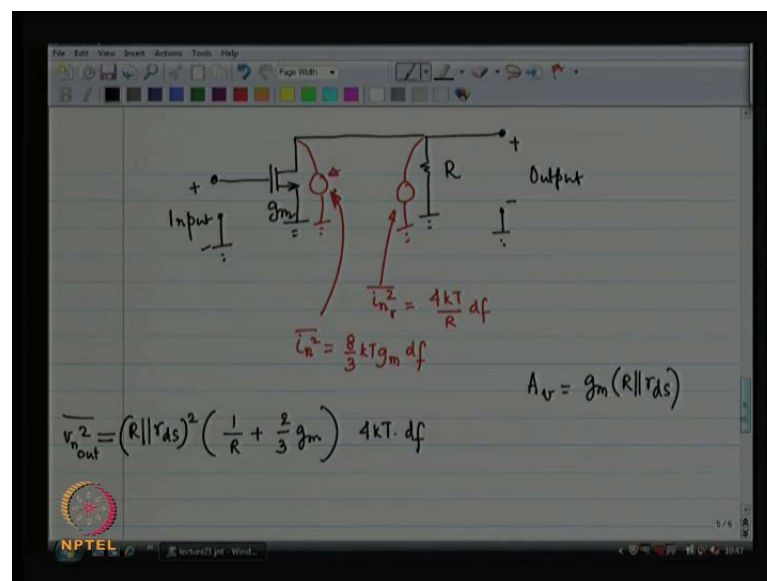 File Edit View Insert Actions Tools Help
Page Width
B I
+
R
+
Output
-
+
gm
Input
-
\overline{i_{n_r}^2} = \frac{4kT}{R} df
\overline{i_n^2} = \frac{8}{3} kT g_m df
A_v = g_m (R || r_{ds})
\overline{v_{n_{out}}^2} = (R || r_{ds})^2 ( \frac{1}{R} + \frac{2}{3} g_m ) 4kT. df
5 / 6
NPTEL
lecture21.jnt - Wind...
10:47